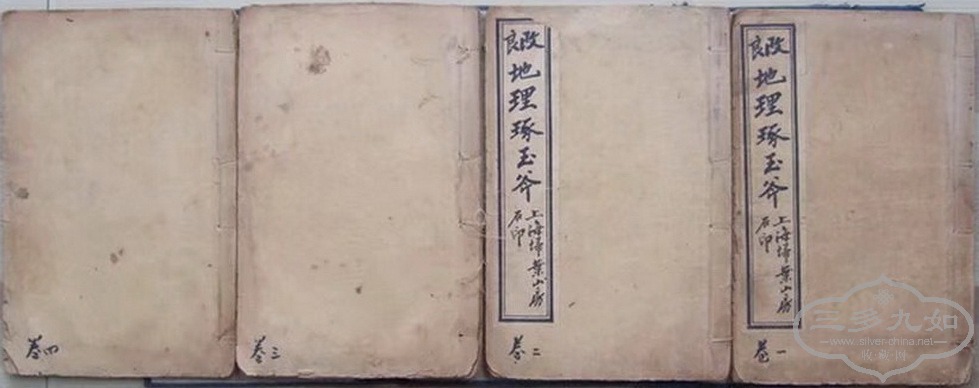 改良地理琢玉斧
上海掃葉山房
石印
卷一
改良地理琢玉斧
上海掃葉山房
石印
卷二
卷三
卷四
三多九如
www.silver-china.net
收藏网